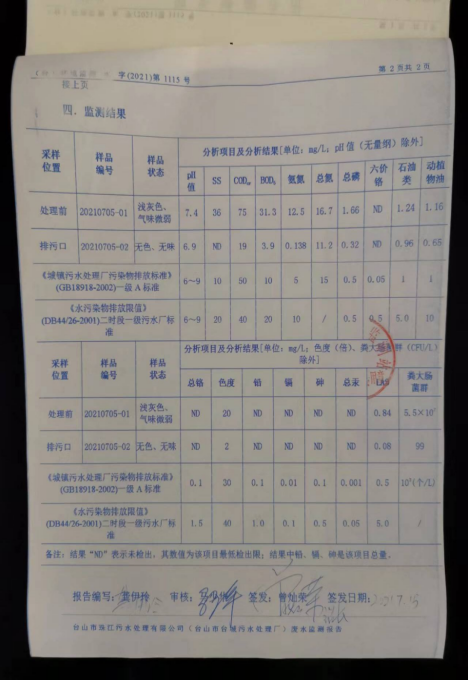 字(2021)第 1115 号
第 2 页共 2 页
接上页
四、监测结果
采样位置 样品编号 样品状态 分析项目及分析结果[单位：mg/L；pH 值（无量纲）除外]
pH值 SS COD BOD₅ 氨氮 总氮 总磷 六价铬 石油类 动植物油
处理前 20210705-01 浅灰色、气味微弱 7.4 36 75 31.3 12.5 16.7 1.66 ND 1.24 1.16
排污口 20210705-02 无色、无味 6.9 ND 19 3.9 0.138 11.2 0.32 ND 0.96 0.65
《城镇污水处理厂污染物排放标准》(GB18918-2002)一级 A 标准 6~9 10 50 10 5 15 0.5 0.05 1 1
《水污染物排放限值》(DB44/26-2001)二时段一级污水厂标准 6~9 20 40 20 10 / 0.5 0.5 5.0 10
采样位置 样品编号 样品状态 分析项目及分析结果[单位：mg/L；色度（倍）、粪大肠菌群（CFU/L）除外]
总铬 色度 铅 镉 砷 总汞 LAS 粪大肠菌群
处理前 20210705-01 浅灰色、气味微弱 ND 20 ND ND ND ND 0.84
排污口 20210705-02 无色、无味 ND 2 ND ND ND ND 0.08 99
《城镇污水处理厂污染物排放标准》(GB18918-2002)一级 A 标准 0.1 30 0.1 0.01 0.1 0.001 0.5 (个/L)
《水污染物排放限值》(DB44/26-2001)二时段一级污水厂标准 1.5 40 1.0 0.1 0.5 0.05 5.0 /
备注：结果“ND”表示未检出，其数值为该项目最低检出限；结果中铅、镉、砷是该项目总量。
报告编写： 审核： 签发： 签发日期：
台山市珠江污水处理有限公司（台山市台城污水处理厂）废水监测报告